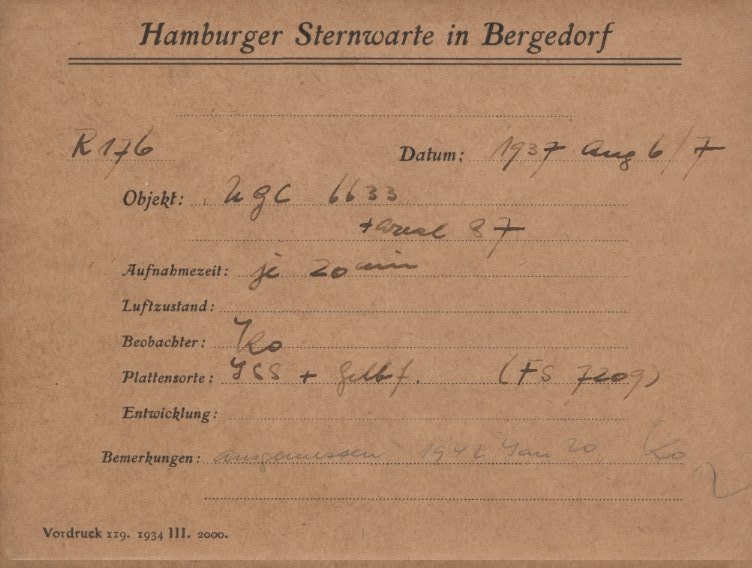 Hamburger Sternwarte in Bergedorf
R 176 Datum: 1937 Aug 6/7
Objekt: NGC 6633
+ areal 87
Aufnahmezeit: je 20 min
Luftzustand:
Beobachter: Ko
Plattensorte: ISS + Gelbf. (FS 7209)
Entwicklung:
Bemerkungen: ausgemessen 1942 Jan 20 Ko
Vordruck 119. 1934 III. 2000.